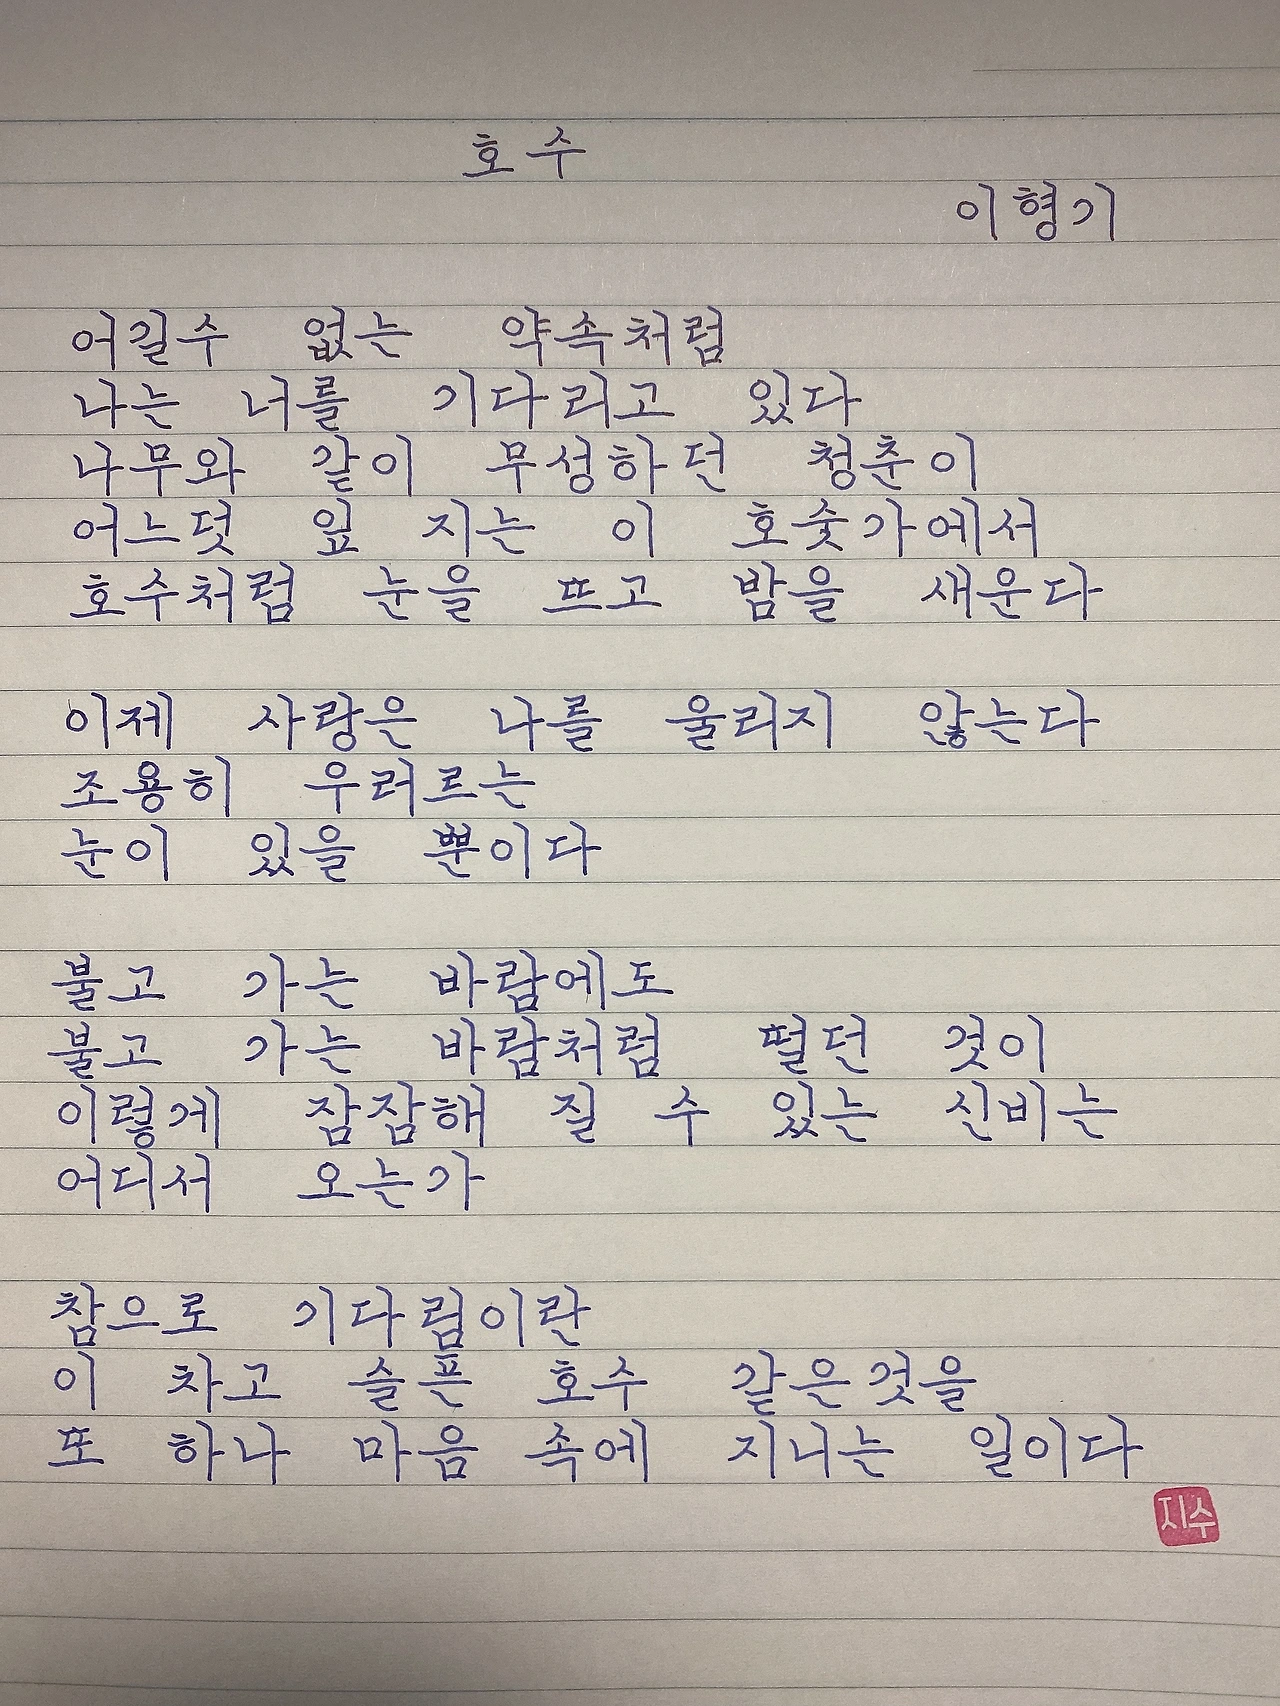 호수
이형기
어길수 없는 약속처럼
나는 너를 기다리고 있다
나무와 같이 무성하던 청춘이
어느덧 잎 지는 이 호숫가에서
호수처럼 눈을 뜨고 밤을 새운다
이제 사랑은 나를 울리지 않는다
조용히 우러르는
눈이 있을 뿐이다
불고 가는 바람에도
불고 가는 바람처럼 떨던 것이
이렇게 잠잠해 질 수 있는 신비는
어디서 오는가
참으로 기다림이란
이 차고 슬픈 호수 같은것을
또 하나 마음 속에 지니는 일이다
지수